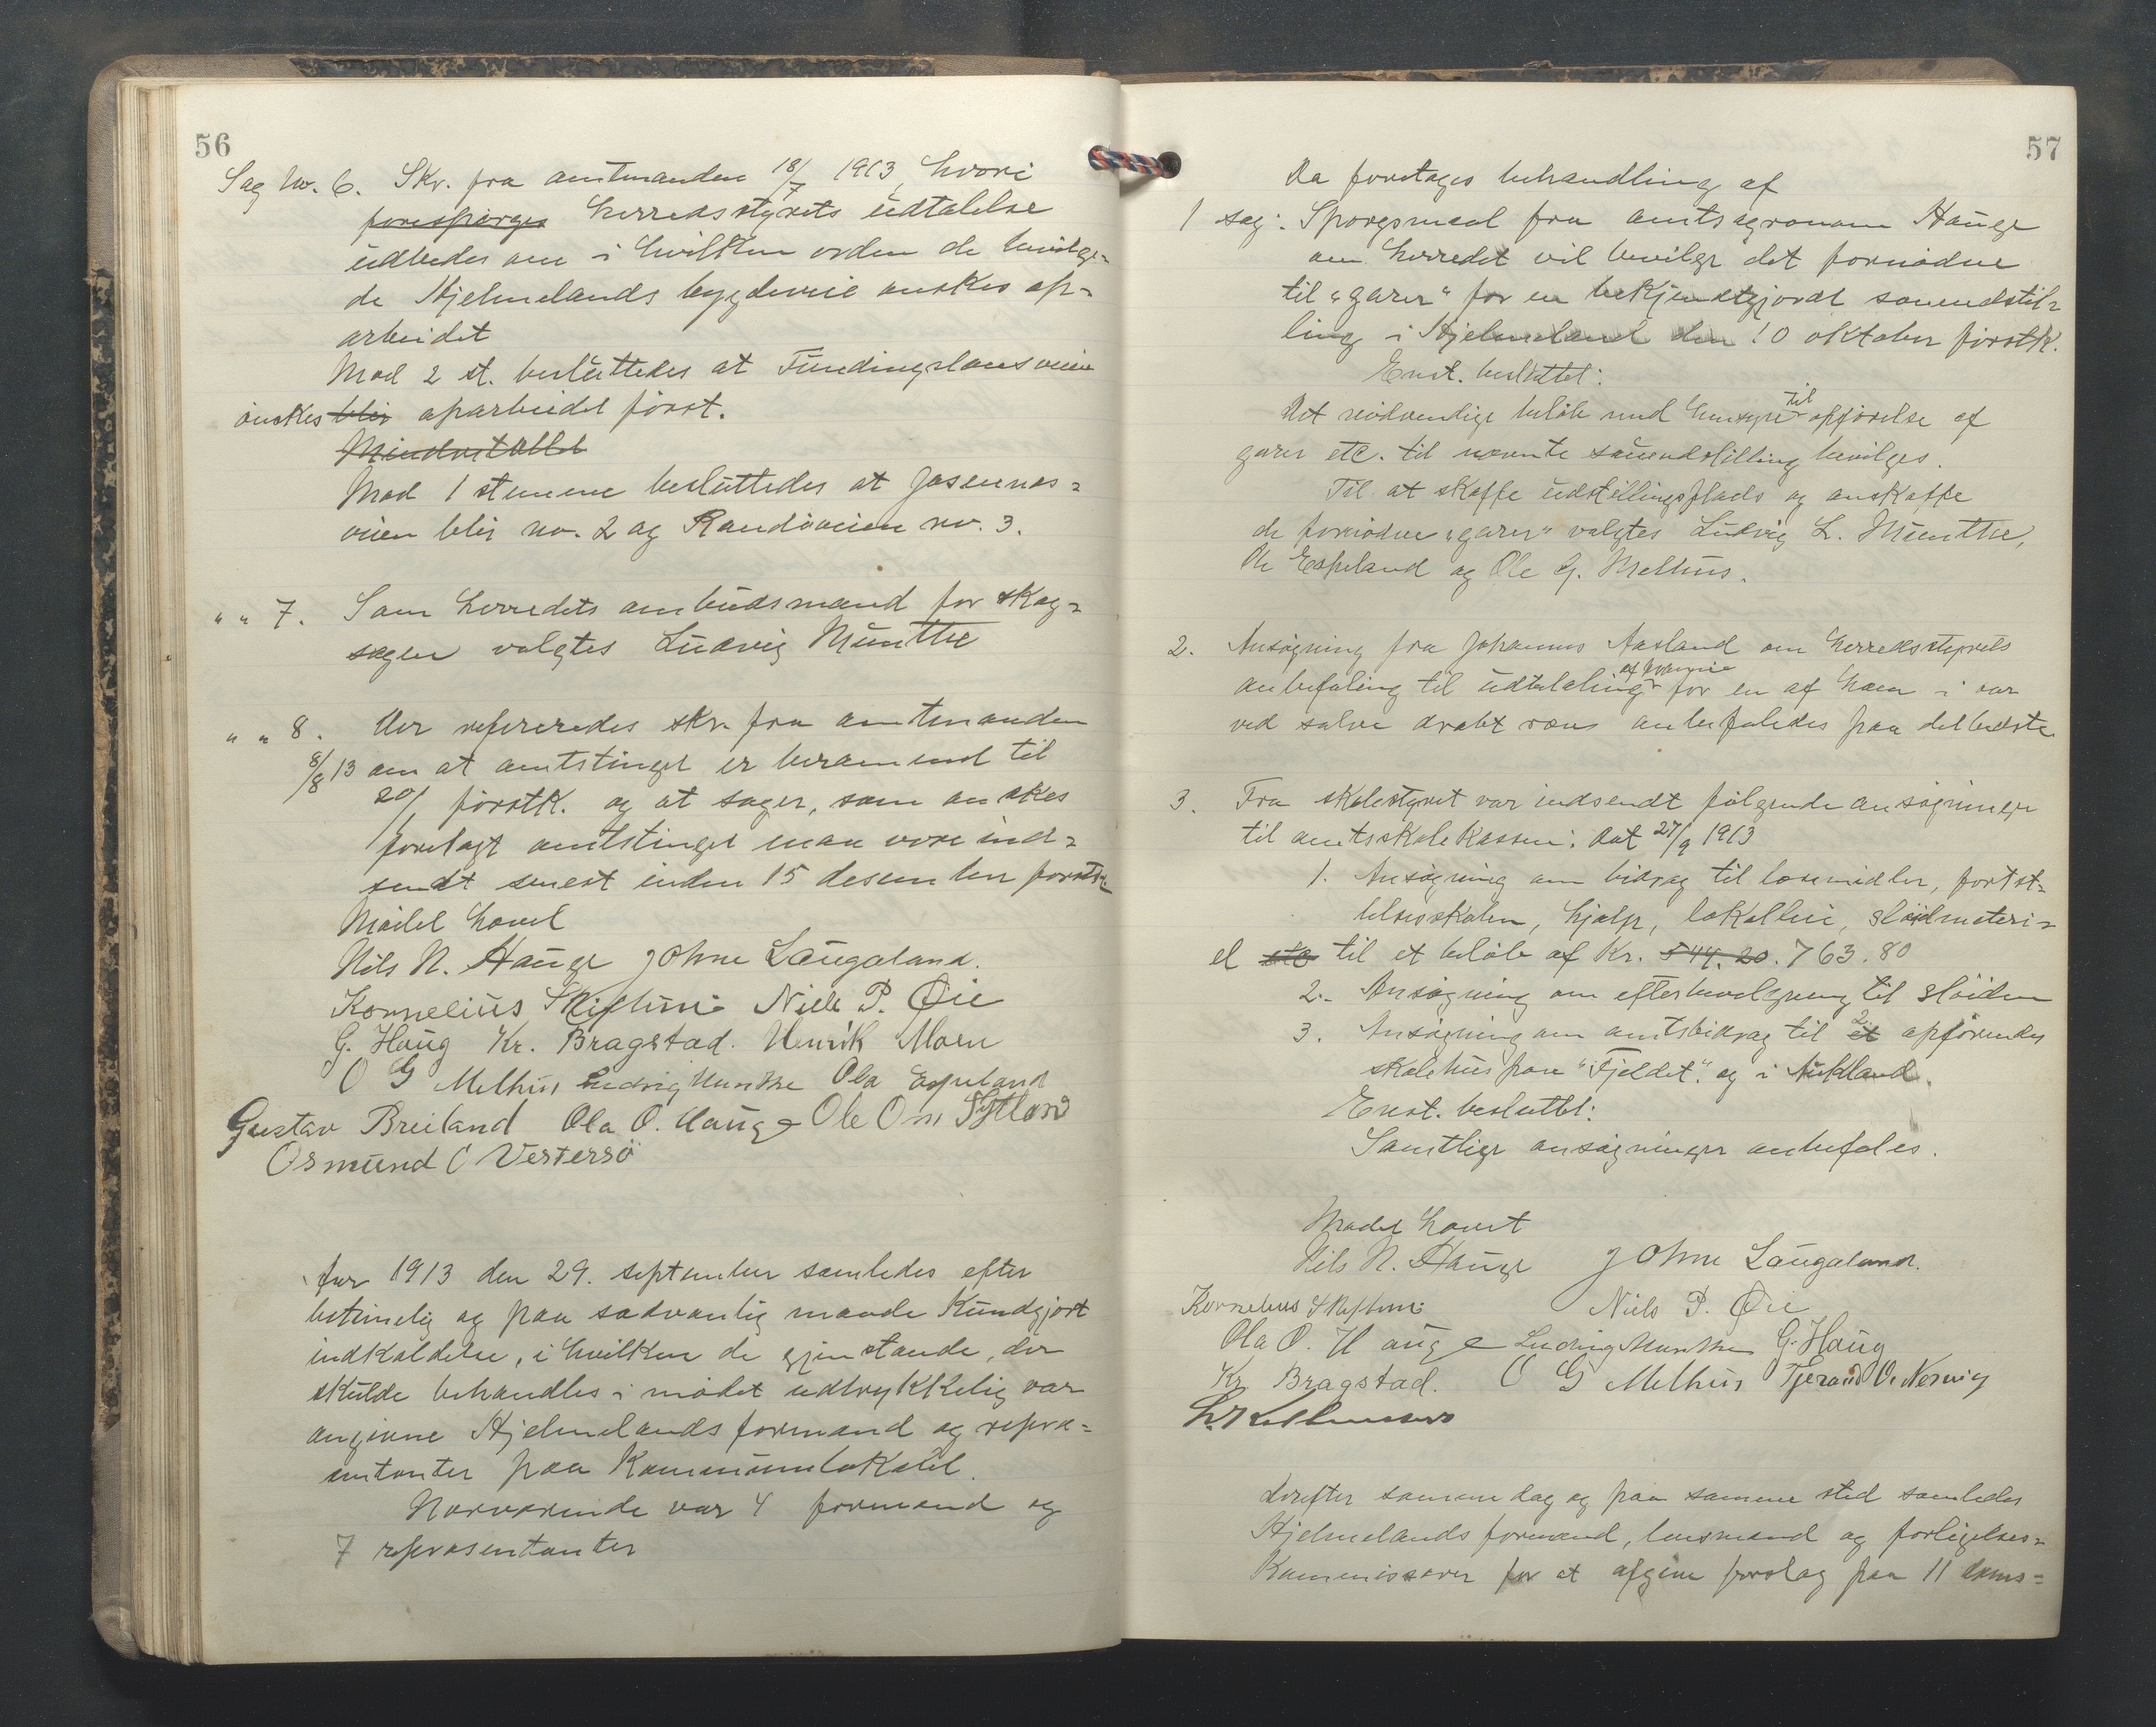 56
Sag No. 6. Skr. fra amtmanden 18/7 1913, hvori
forespørges herredsstyrets udtalelse
udbedes om i hvilken orden de bevilge-
de Hjelmelands bygdeveie ønskes op-
arbeidet
Mod 2 st. besluttedes at Fundingslansveien
ønskes blir oparbeidet først.
Mindretallet
Mod 1 stemme besluttedes at Jøsennes-
veien blir no. 2 og Randöveien no. 3.
" " 7. Som herredets ombudsmand for skog-
sagen valgtes Ludvig Munthe
" " 8. Der refereredes skr. fra amtmanden
8/8 13 om at amtstinget er berammet til
20/1 förstk. og at sager, som ønskes
forelagt amtstinget maa være ind-
sendt senest inden 15 desember förstk.
Mödet hævet
Nils N. Hauge Johne Laugaland.
Kornelius Skiftun Niels P. Øie
G. Haug Kr. Bragstad. Henrik Moen
O G Melhus Ludvig Munthe Ola Espeland
Gustav Breiland Ola O. Hauge Ole Om Sytland
Osmund O Vestersö
Aar 1913 den 29. september samledes efter
betimelig og paa sædvanlig maade kundgjort
indkaldelse, i hvilken de gjenstande, der
skulde behandles i mödet udtrykkelig var
angivne Hjelmelands formænd og repræ-
sentanter paa Kommunelokalet.
Nærværende var 4 formænd og
7 repræsentanter
57
Da foretages behandling af
1 sag: Spörgsmaal fra amtsagronom Hauge
om herredet vil bevilge det fornödne
til "garer" for en bekjendtgjordt saueudstil-
ling i Hjelmeland den 10 oktober förstk.
Enst. besluttet:
Det nödvendige belöb med hensyn til opförelse af
garer etc. til nævnte saueudstilling bevilges.
Til at skaffe udstillingsplads og anskaffe
de fornödne "garer" valgtes Ludvig L. Munthe,
Ole Espeland og Ole G. Melhus.
2. Ansögning fra Johannes Aasland om herredsstyrets
anbefaling til udbetaling af præmie for en af ham i vaar
ved salve dræbt ræv anbefaledes paa det bedste.
3. Fra skolestyret var indsendt fölgende ansögninger
til amtsskolekassen: Dat 27/9 1913
1. Ansögning om bidrag til læremidler, fortsæt-
telsesskolen, hjælp, lokalleie, slöidmateri-
el etc til et belöb af Kr. 544.20. 763.80
2. Ansögning om efterbevilgning til slöiden
3. Ansögning om amtsbidrag til et 2 opförendes
skolehus paa "Fjeldet" og i Aukland.
Enst. besluttet:
Samtlige ansögninger anbefales.
Mödet hævet
Nils N. Hauge Johne Laugaland.
Kornelius Skiftun Niels P. Øie
Ola O. Hauge Ludvig Munthe G. Haug
Kr. Bragstad. O G Melhus Tjerand O. Nesvig
Derefter samme dag og paa samme sted samledes
Hjelmelands formænd, lensmand og forligelses-
kommissærer for at afgive forslag paa 11 doms-